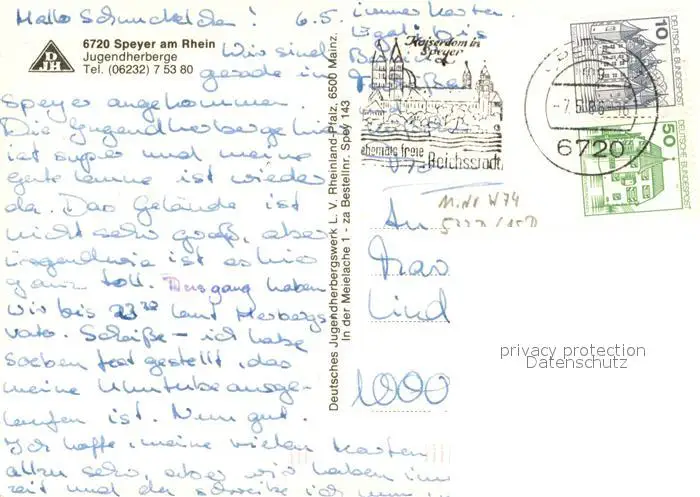 Hallo Schnuckelchen! 6.5.
6720 Speyer am Rhein
Jugendherberge
Tel. (06232) 7 53 80
DJH
Wir sind
gerade in
Speyer angekommen.
Die Jugendherberge hier
ist super und meine
gute Laune ist wieder
da. Das Gelände ist
nicht sehr groß, aber
irgendwie ist es hier
ganz toll. Ausgang haben
wir bis laut Herbergs
vater. Scheiße – ich habe
soeben festgestellt, das
meine Uhrtube ausge-
laufen ist. Nun gut.
Ich hoffe, meine vielen Karten
allzu sehr, aber wir haben
zeit und da schreibe ich
immer Karten.
Egal bis
Deutsches Jugendherbergswerk L. V. Rheinland-Pfalz, 6500 Mainz,
In der Meielache 1 - za Bestellnr. Spey 143
Kaiserdom in
Speyer
ehemals freie
Reichsstadt
6720
10
DEUTSCHE BUNDESPOST
50
DEUTSCHE BUNDESPOST
An
1000
privacy protection
Datenschutz